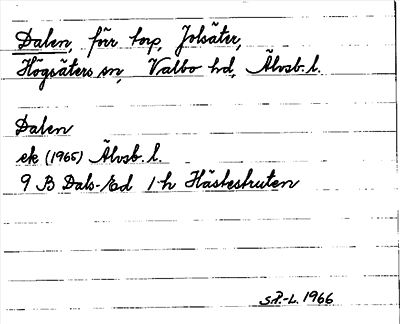 Dalen, förr torp, Jolsäter,
Högsäters sn, Valbo hd, Älvsb. l.
Dalen
ek (1965) Älvsb. l.
9 B Dals-Ed 1-h Hästestruten
S.P.-L. 1966